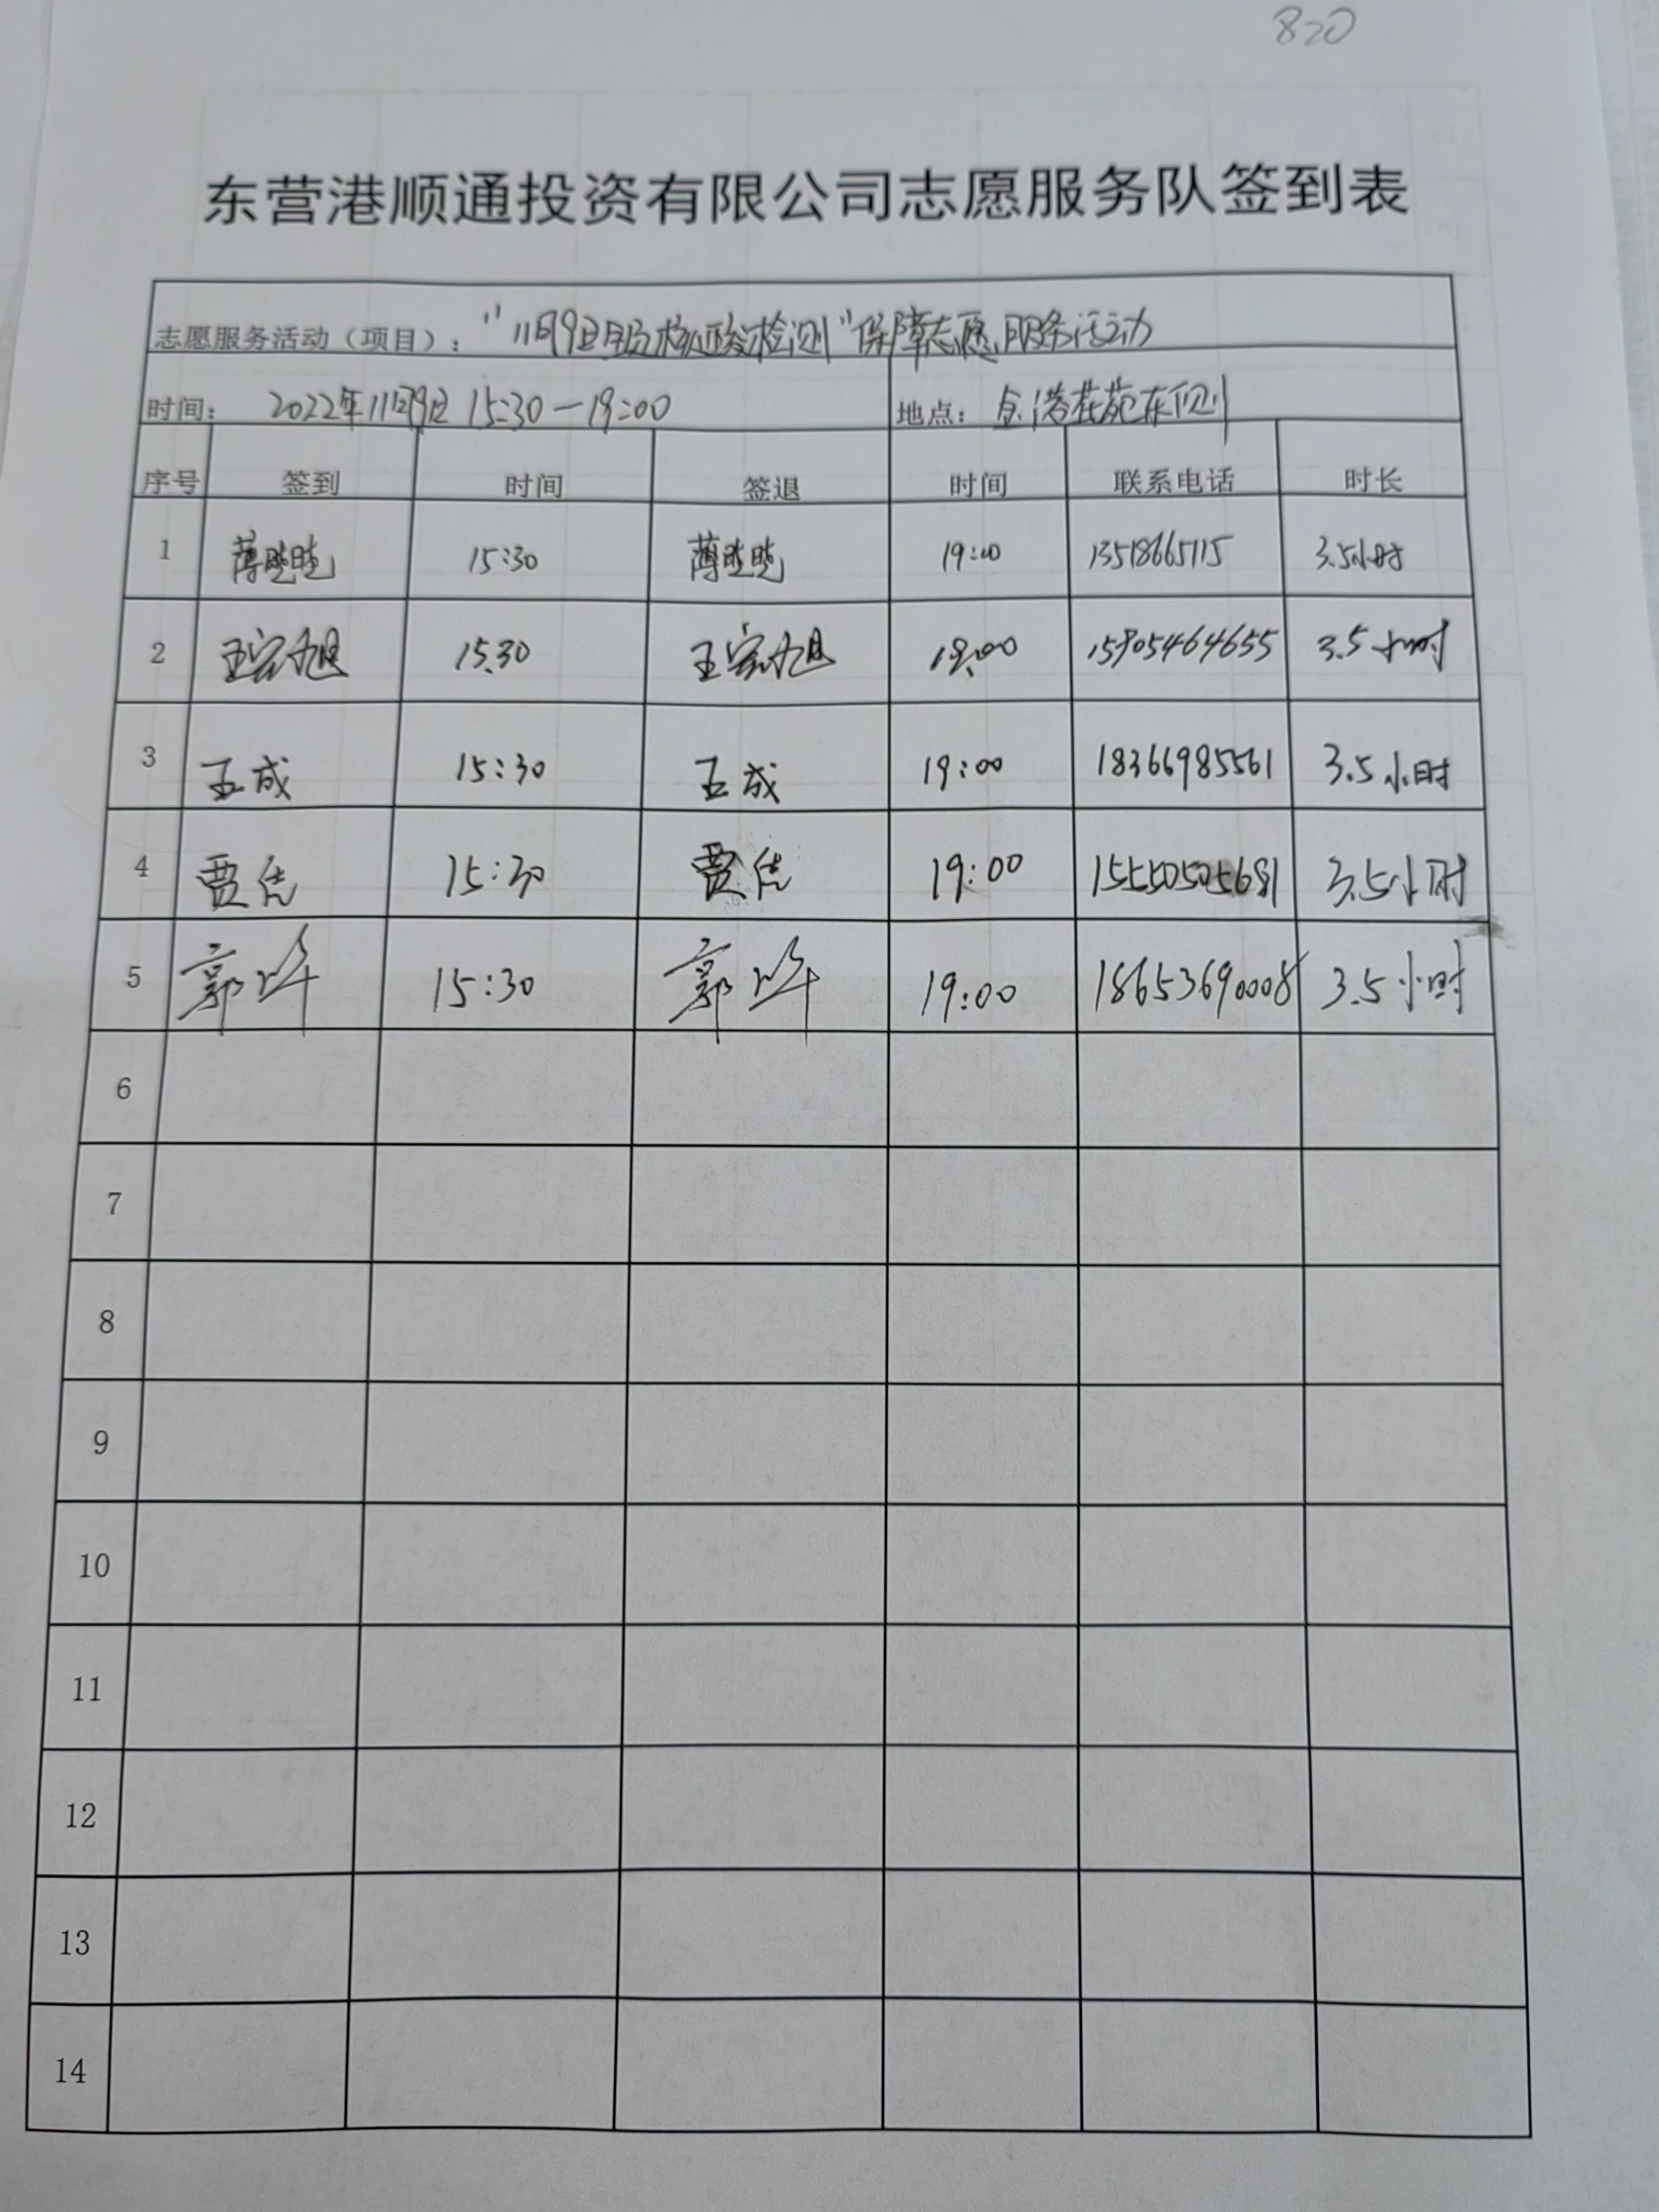 820
东营港顺通投资有限公司志愿服务队签到表
志愿服务活动（项目）： “11月9日全员核酸检测”保障志愿服务活动
时间： 2022年11月9日 15:30—19:00 地点： 金港花苑东侧
序号 签到 时间 签退 时间 联系电话 时长
1 薄晓晓 15:30 薄晓晓 19:00 13518665115 3.5小时
2 王宗旭 15:30 王宗旭 19:00 15905464655 3.5小时
3 王成 15:30 王成 19:00 18366985561 3.5小时
4 贾佳 15:30 贾佳 19:00 15550505681 3.5小时
5 郭 15:30 郭 19:00 18653690008 3.5小时
6
7
8
9
10
11
12
13
14